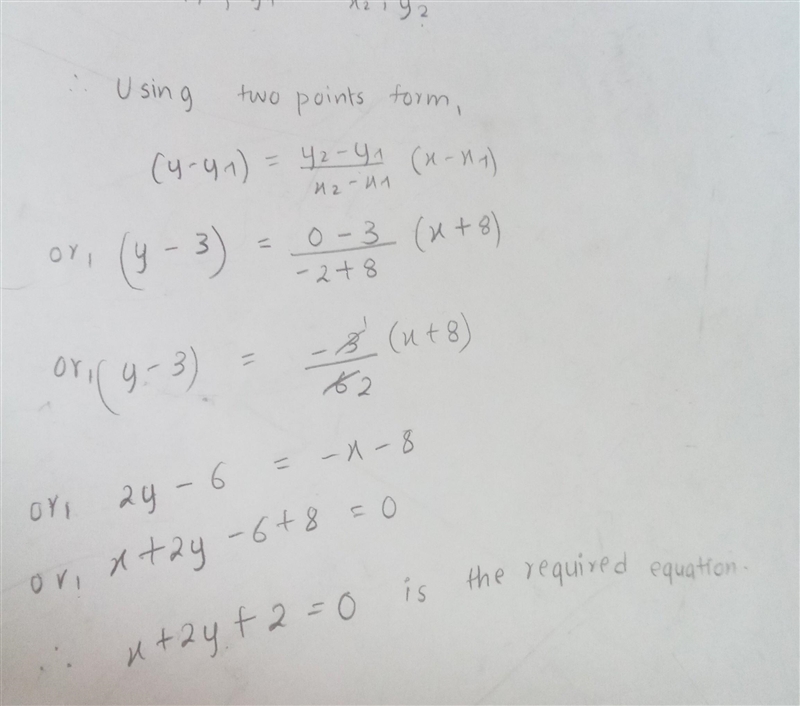 x2, y2
∴ Using two points form,
(y-y1) = y2-y1/x2-x1 (x-x1)
or, (y-3) = 0-3/-2+8 (x+8)
or, (y-3) = -3 1/6 2 (x+8)
or, 2y-6 = -x-8
or, x+2y-6+8=0
∴ x+2y+2=0 is the required equation.